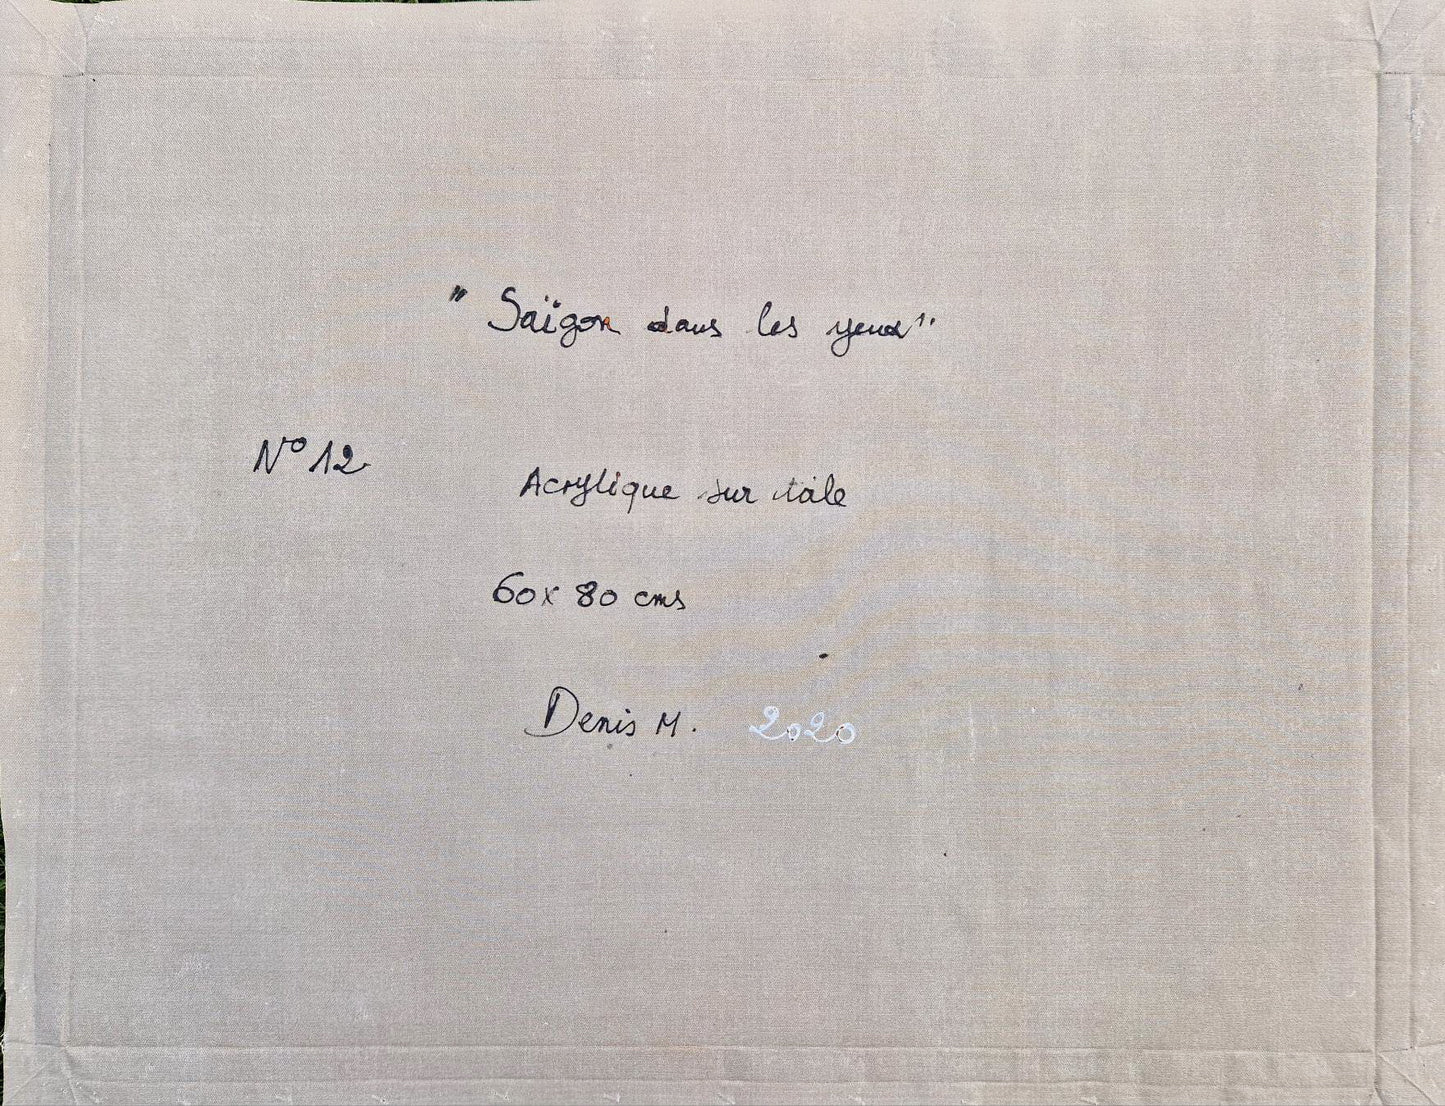 " Saïgon dans les yeux"
N° 12
Acrylique sur toile
60 x 80 cms
Denis M. 2020